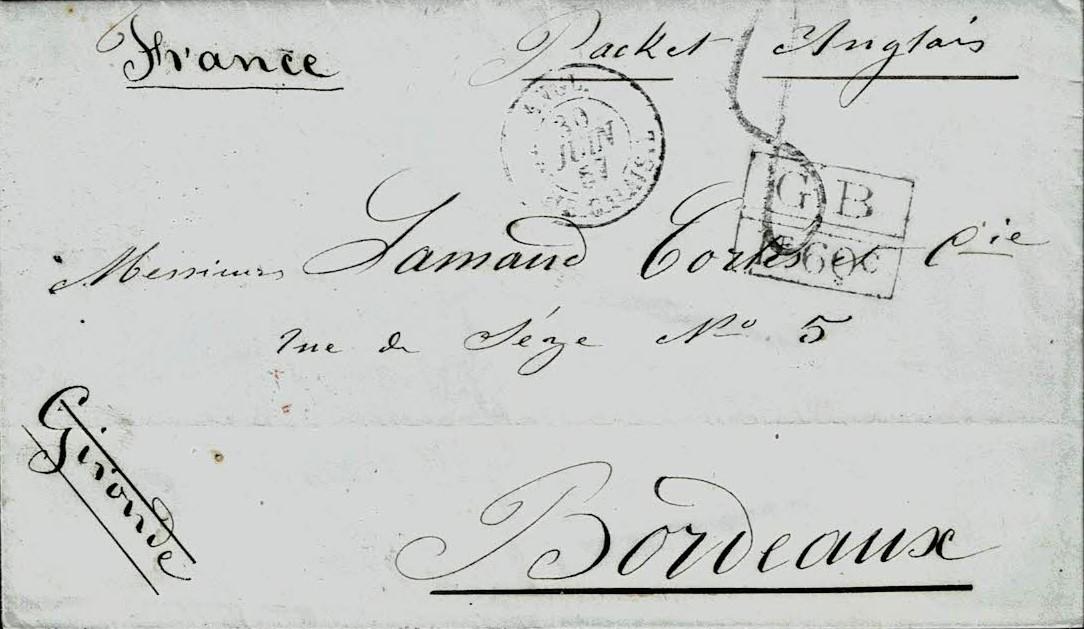 France
Packet Anglais
ANGL.
30
JUIN
57
GB
1F 60C
Messieurs Lamaud Cortès et Cie
rue de Séze No 5
Gironde
Bordeaux